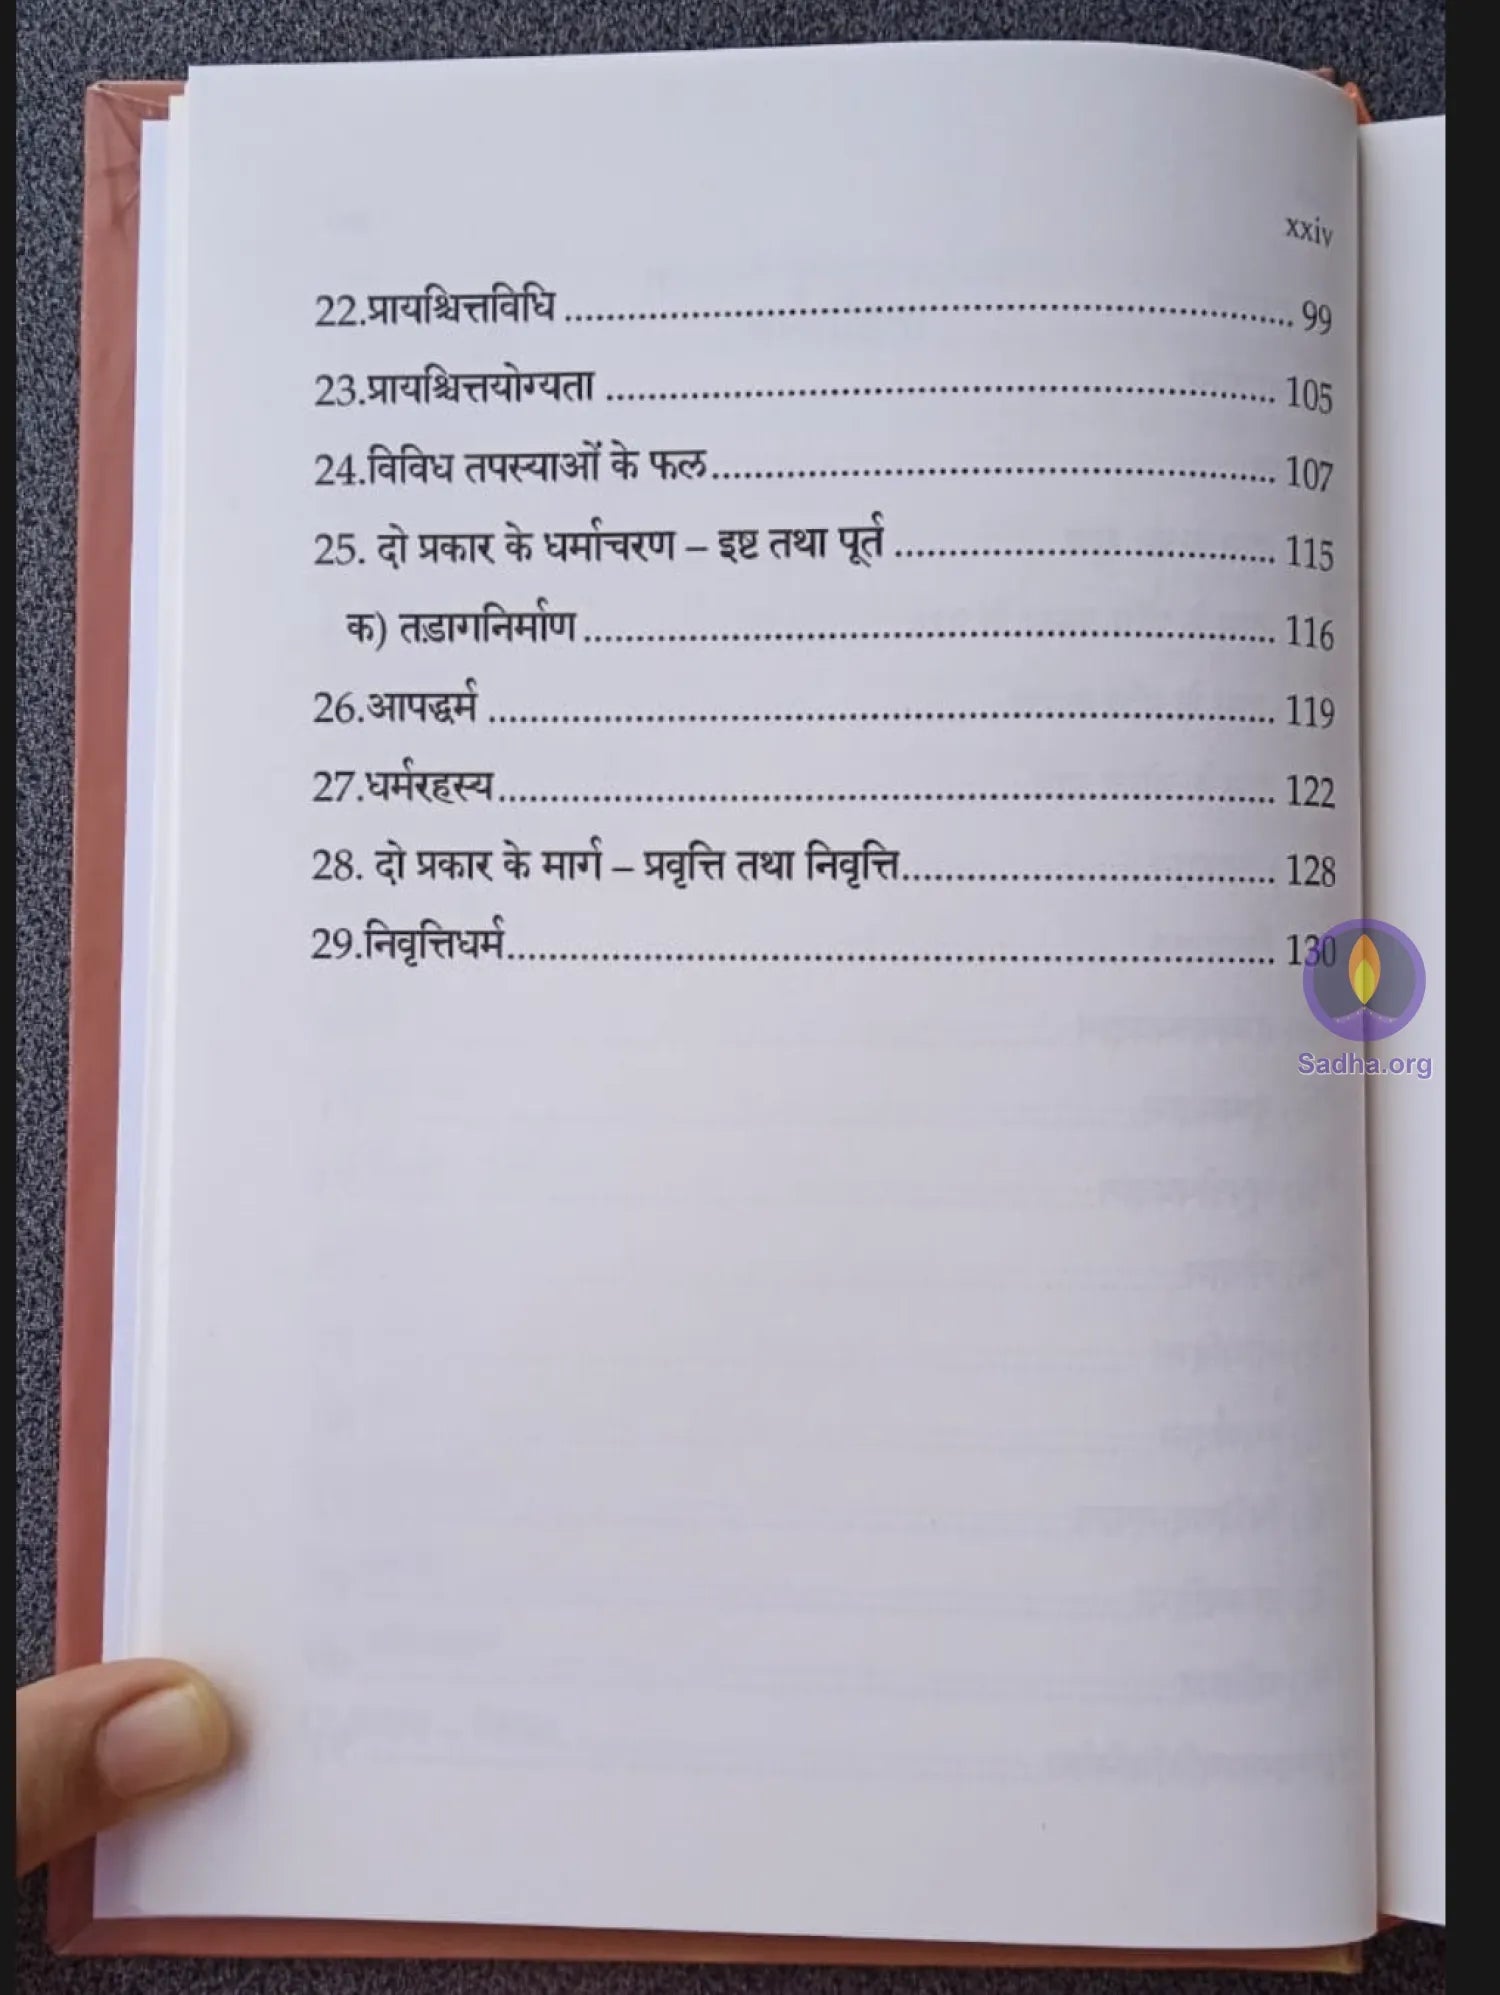 xxiv
22.प्रायश्चित्तविधि ........................................................................ 99
23.प्रायश्चित्तयोग्यता ................................................................. 105
24.विविध तपस्याओं के फल....................................................... 107
25. दो प्रकार के धर्माचरण – इष्ट तथा पूर्त ..................................... 115
क) तड़ागनिर्माण.................................................................... 116
26.आपद्धर्म ............................................................................. 119
27.धर्मरहस्य............................................................................ 122
28. दो प्रकार के मार्ग – प्रवृत्ति तथा निवृत्ति.................................... 128
29.निवृत्तिधर्म.......................................................................... 130
Sadha.org